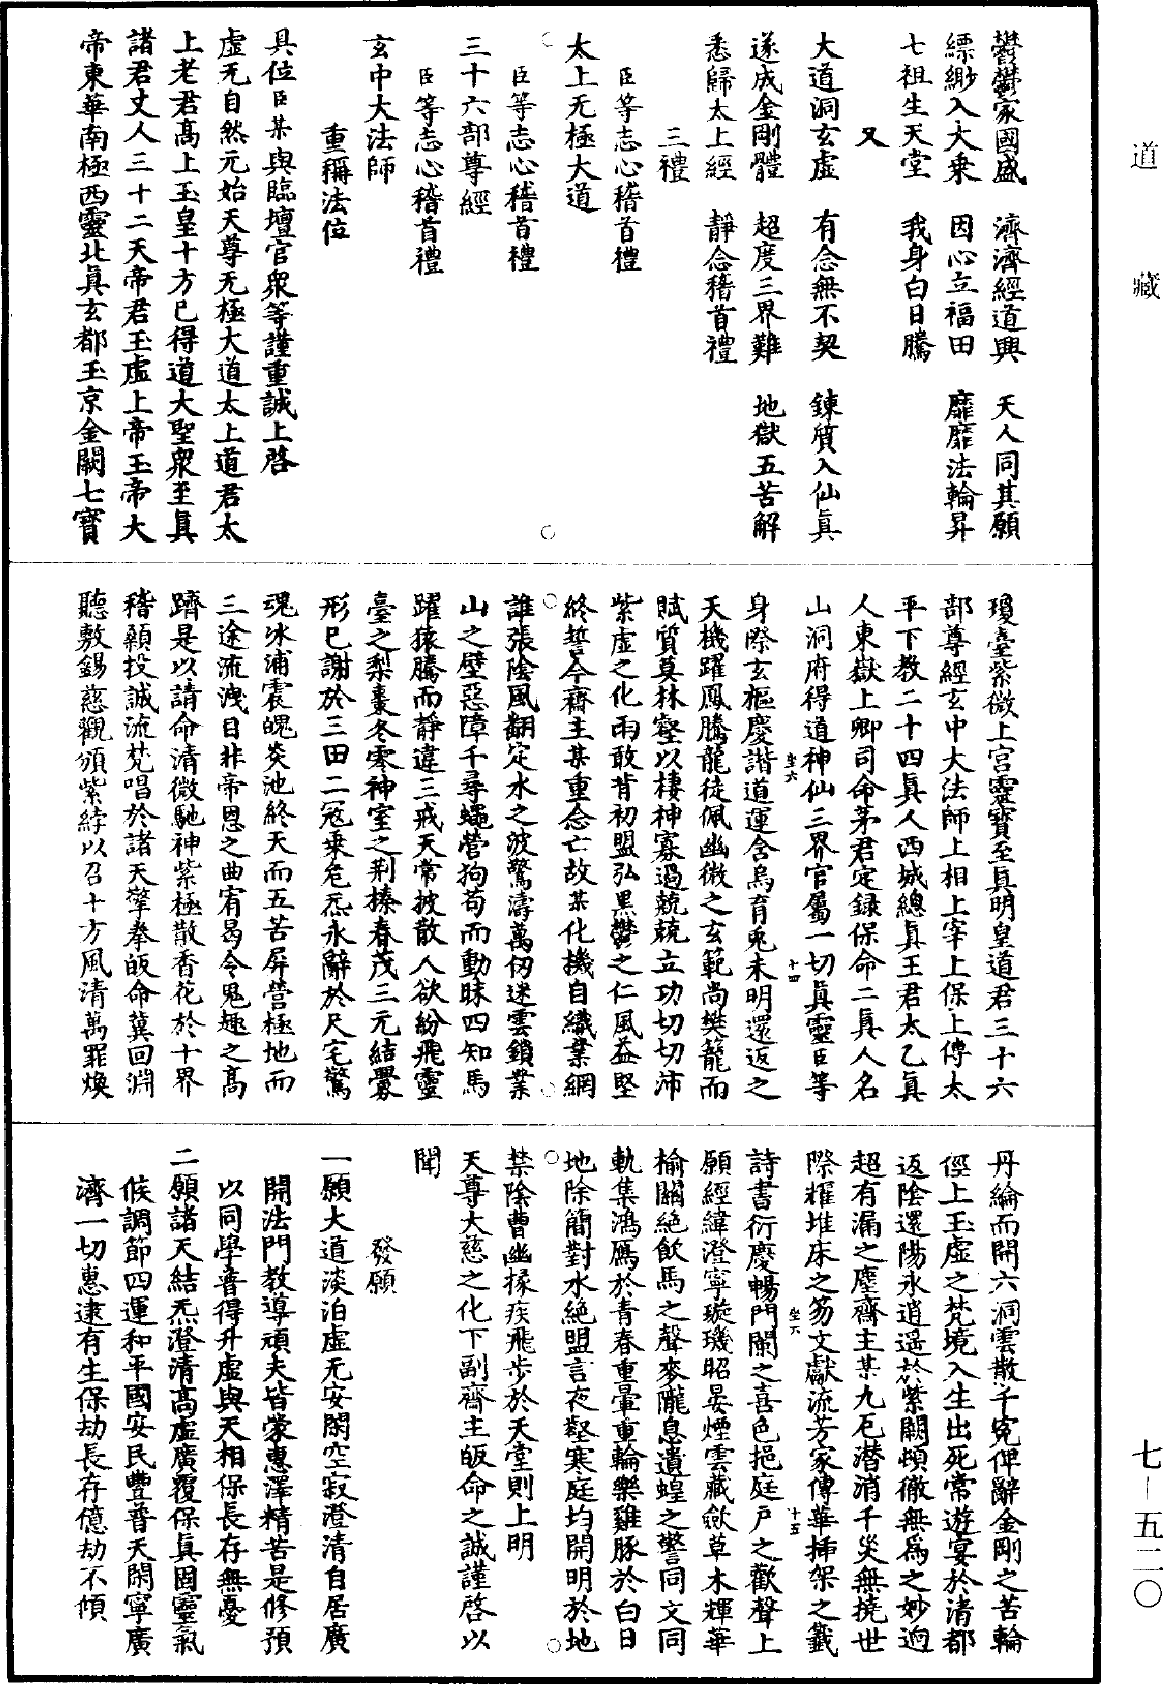 道藏
鬱鬱家國盛　濟濟經道興　天人同其願
縹緲入大乘　因心立福田　靡靡法輪昇
七祖生天堂　我身白日騰
又
大道洞玄虛　有念無不契　鍊質入仙眞
遂成金剛體　超度三界難　地獄五苦解
悉歸太上經　靜念稽首禮
三禮
臣等志心稽首禮
太上无極大道
臣等志心稽首禮
三十六部尊經
臣等志心稽首禮
玄中大法師
重稱法位
具位臣某與臨壇官衆等謹重誠上啓
虛无自然元始天尊无極大道太上道君太
上老君高上玉皇十方已得道大聖衆至眞
諸君丈人三十二天帝君玉虛上帝玉帝大
帝東華南極西靈北眞玄都玉京金闕七寶
瓊臺紫微上宮靈寶至眞明皇道君三十六
部尊經玄中大法師上相上宰上保上傅太
平下教二十四眞人西城總眞王君太乙眞
人東嶽上卿司命茅君定錄保命二眞人名
山洞府得道神仙三界官屬一切眞靈臣等
坐六　十四
身際玄樞慶諧道運含烏育兎未明還返之
天機躍鳳騰龍徒佩幽微之玄範尚樊籠而
賦質莫林壑以棲神寡過兢兢立功切切沛
紫虛之化雨敢背初盟弘黑鬱之仁風益堅
終誓今齋主某重念亡故某化機自織業網
誰張陰風翻定水之波驚濤萬仞迷雲鎖業
山之壁惡障千尋蠅營狗苟而動昧四知馬
躍猿騰而靜違三戒天常披散人欲紛飛靈
臺之梨棗冬零神室之荆榛春茂三元結釁
形已謝於三田二冦乘危炁永辭於尺宅驚
魂冰浦震魄炎池終天而五苦屏營極地而
三途流洩自非帝恩之曲宥曷令鬼趣之高
躋是以請命清微馳神紫極散香花於十界
稽顙投誠流梵唱於諸天擎拳皈命冀回淵
聽敷錫慈觀頒紫綍以召十方風清萬罪煥
丹綸而開六洞雲散千寃俾辭金剛之苦輪
徑上玉虛之梵境入生出死常遊宴於清都
返陰還陽永逍遥於紫闕頓徹無爲之妙迥
超有漏之塵齋主某九厄潜消千災無撓世
際耀堆床之笏文獻流芳家傳華揷架之籖
坐六　十五
詩書衍慶暢門闌之喜色挹庭戶之歡聲上
願經緯澄寧璇璣昭晏煙雲藏斂草木輝華
榆關絶飲馬之聲麥隴息遺蝗之警同文同
軌集鴻鴈於青春重暈重輪樂雞豚於白日
地除簡對水絶盟言夜壑寒庭均開明於地
禁陰曹幽掾疾飛步於天堂則上明
天尊大慈之化下副齋主皈命之誠謹啓以
聞
發願
一願大道淡泊虛无安閑空寂澄清自居廣
開法門教導頑夫皆蒙惠澤精苦是修預
以同學普得升虛與天相保長存無憂
二願諸天結炁澄清高虛廣覆保眞固靈氣
候調節四運和平國安民豐普天閑寧廣
濟一切惠逮有生保劫長存億劫不傾
七-五二〇